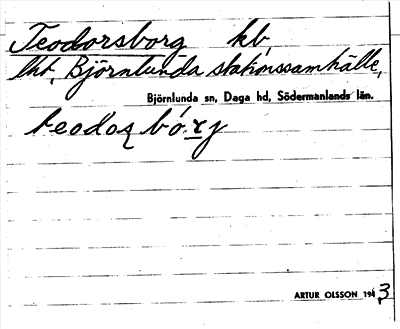 Teodorsborg kb,
lht, Björnlunda stationssamhälle,
Björnlunda sn, Daga hd, Södermanlands län.
ARTUR OLSSON 1943